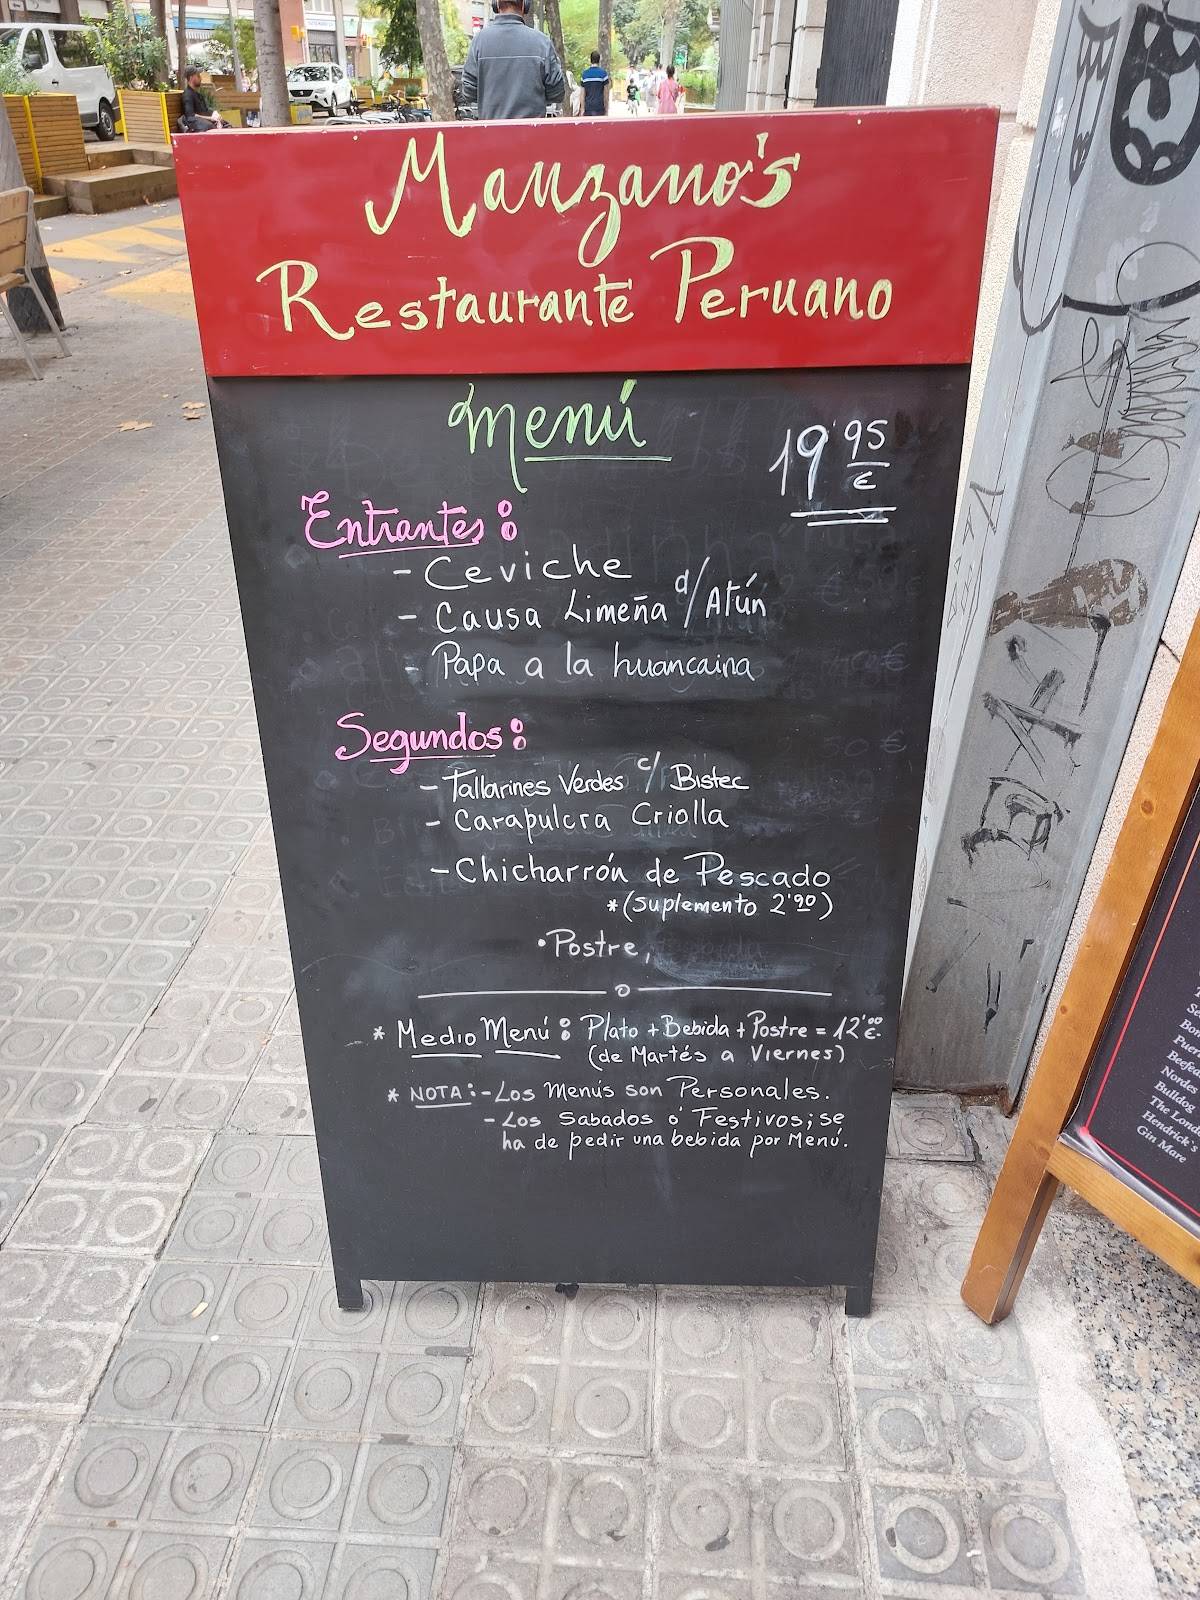 Manzano's
Restaurante Peruano
Menú
19'95
€
Entrantes:
- Ceviche
- Causa Limeña d/ Atún
- Papa a la huancaina
Segundos:
- Tallarines Verdes c/ Bistec
- Carapulcra Criolla
- Chicharrón de Pescado
*(suplemento 2'90)
• Postre,
* Medio Menú: Plato + Bebida + Postre = 12'00 €.
(de Martés a Viernes)
* NOTA: - Los Menús son Personales.
- Los Sabados ó Festivos; se
ha de pedir una bebida por Menú.
Nordes
Bulldog
The Lond
Hendrick's
Gin Mare